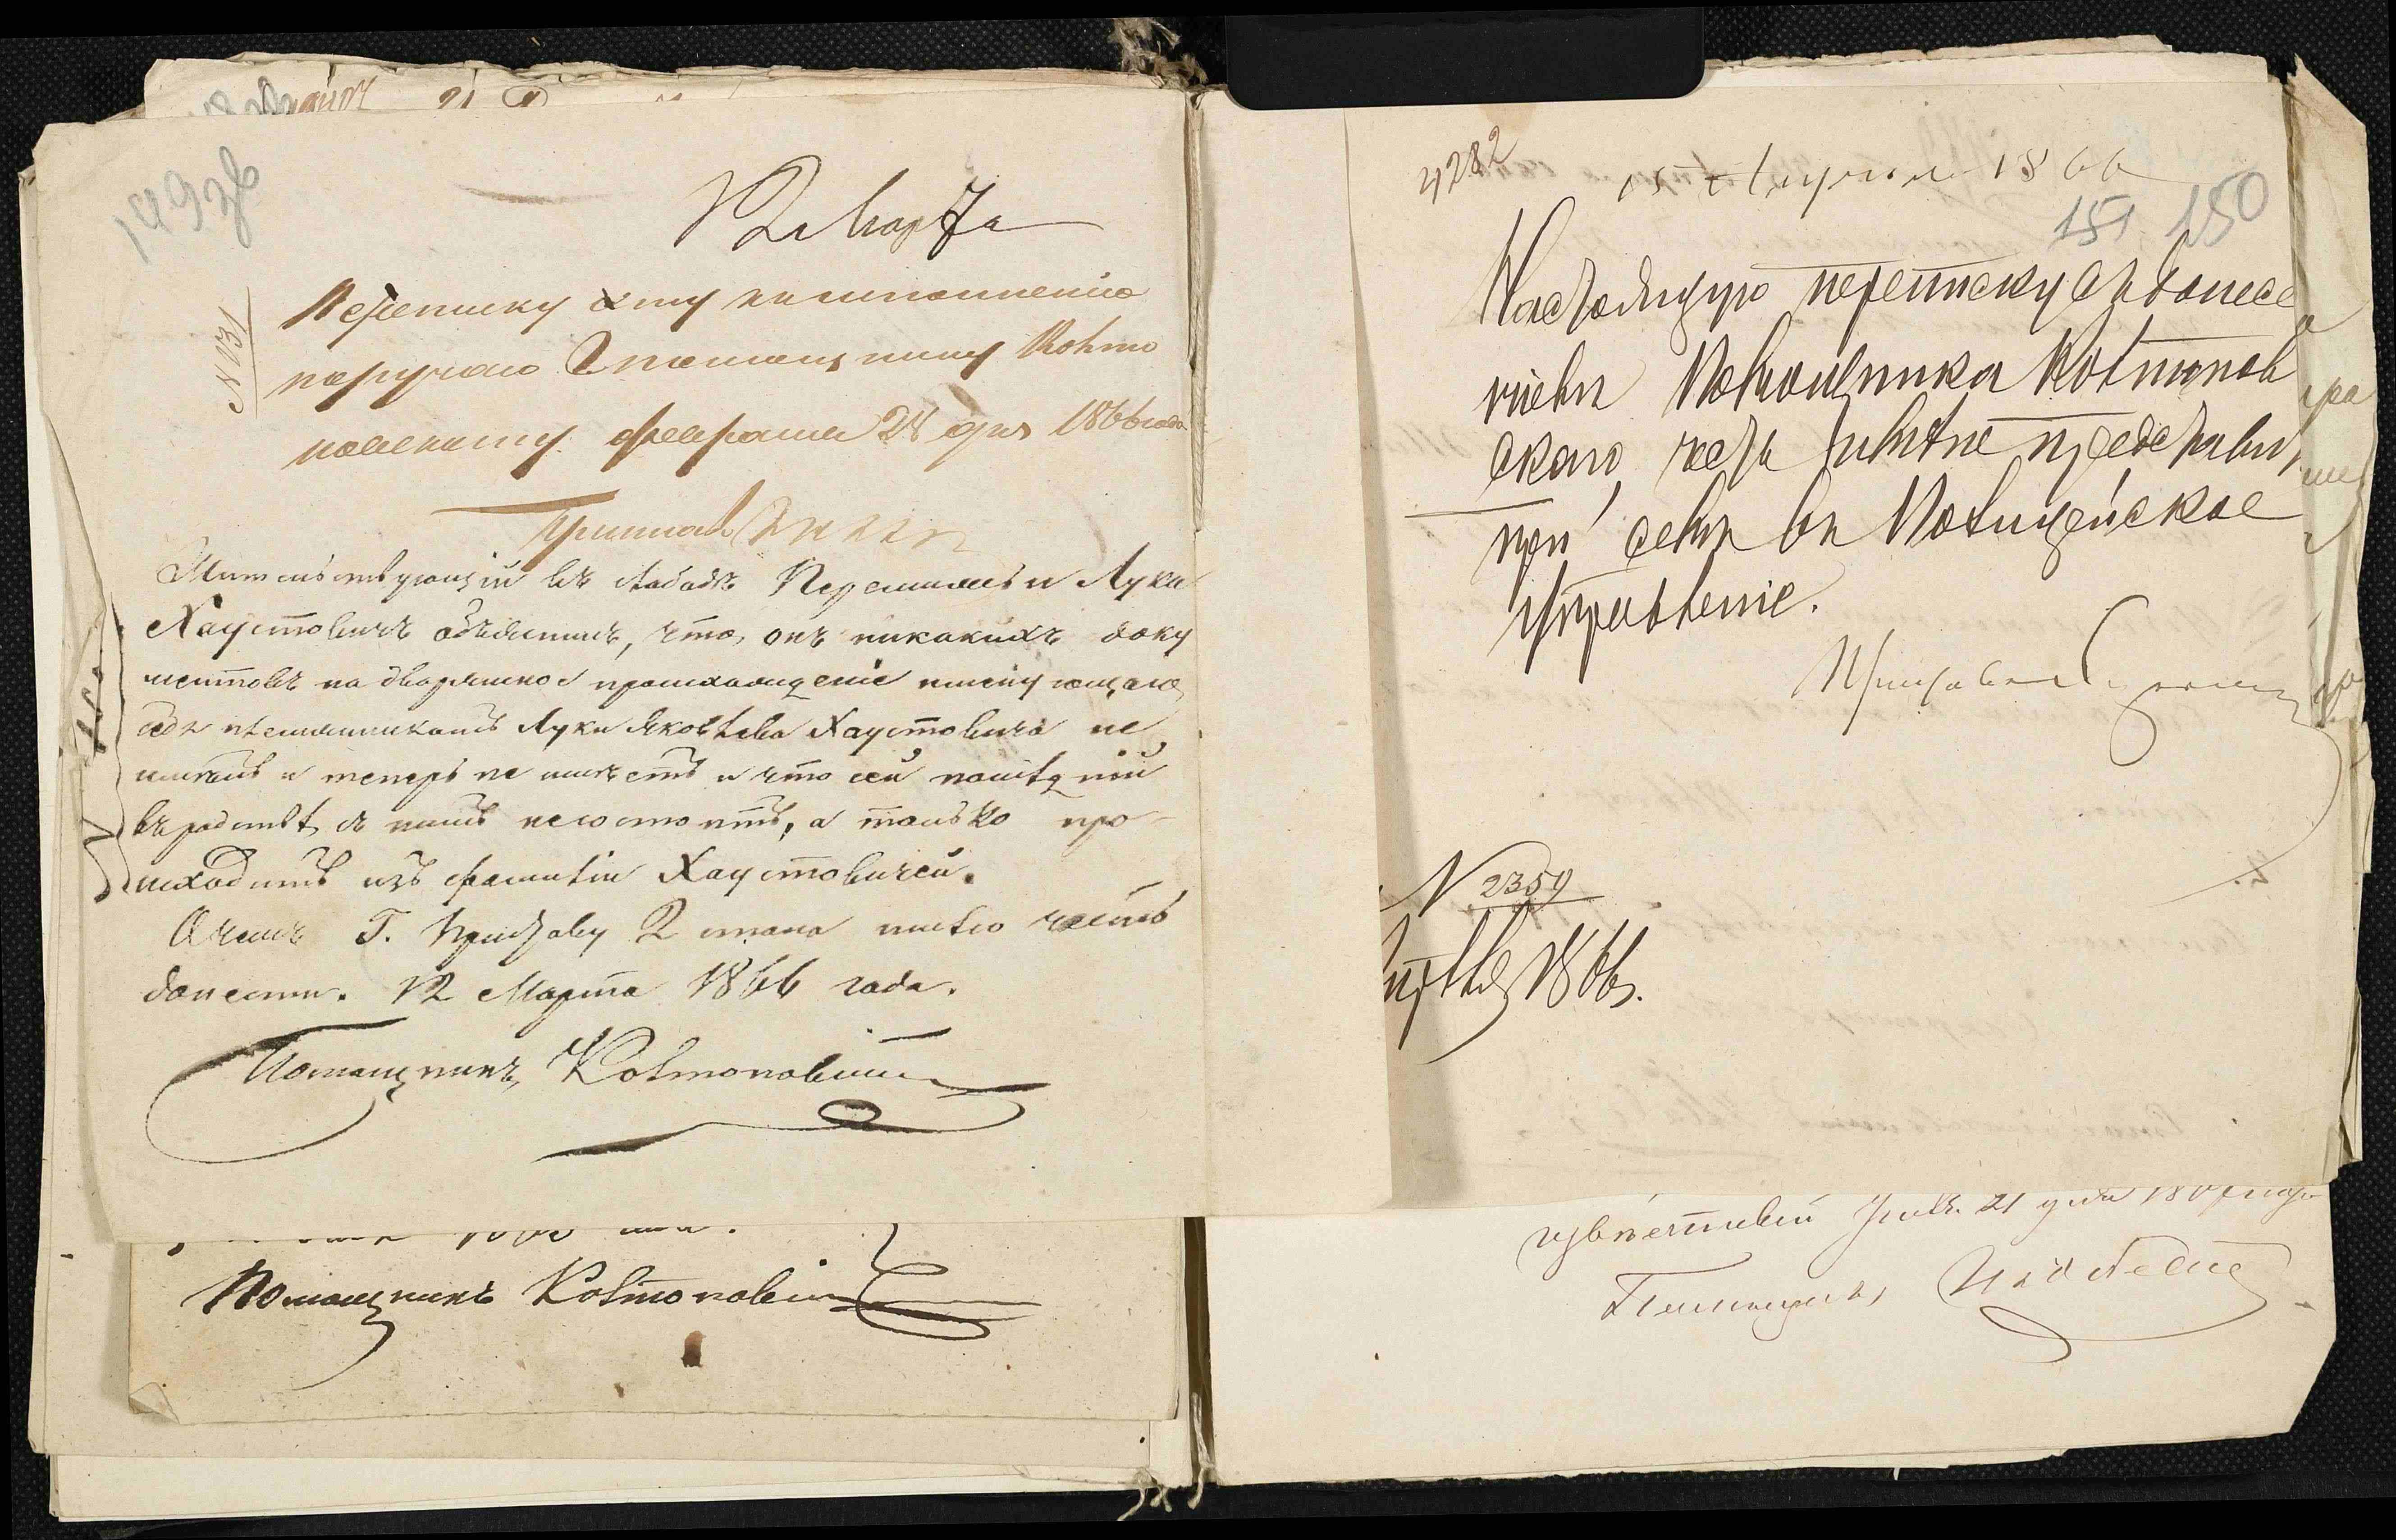 149зв
12 Марта
№ 031
Переписку эту к исполненію
поручаю помощнику Ковто
новскому февраля 28 дня 1866 года
Приставъ
Жительствующій въ слободѣ Перемилы Лука
Хаустовичъ объявилъ, что, онъ никакихъ доку
ментовъ на дворянское происхожденіе именующаго
себя племянникомъ Луки Яковлева Хаустовича не
имѣлъ и теперь не имѣетъ и что сей послѣдній
въ родствѣ съ нимъ не состоитъ, а только про-
исходитъ изъ фамиліи Хаустовичей.
О чемъ Г. Приставу 2 стана имѣю честь
донести. 12 Марта 1866 года.
Помощникъ Ковтоновскій
Помощникъ Ковтоновскій
4282
15 Апреля 1866
151 150
Настоящую переписку съ донесе
ніемъ Помощника Ковтонов
скаго, честь имѣю представить
при семъ въ Полицейское
Управленіе.
Приставъ
N 2359
1866 г.
21 дня
Помощникъ